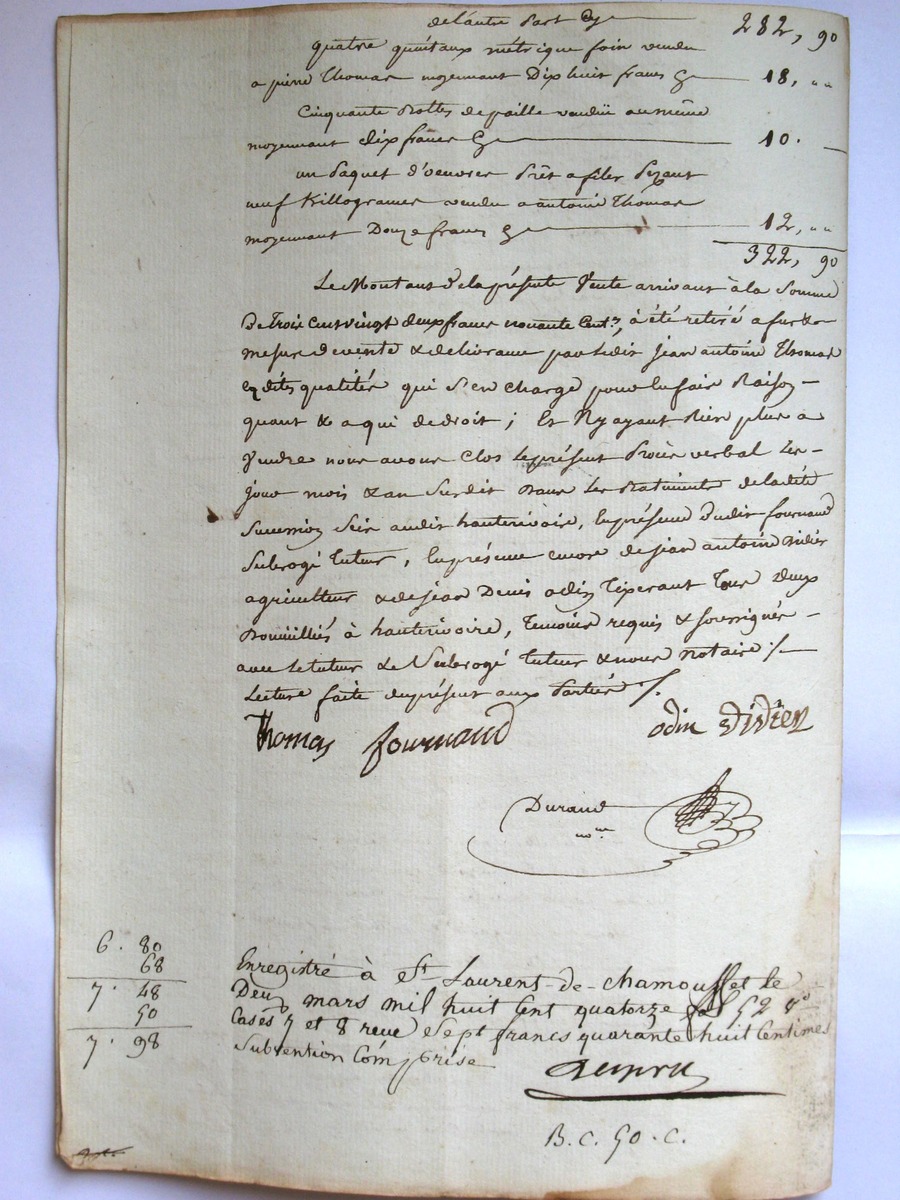 de l'autre part Cy 282, 90
quatre quintaux métrique foin vendu
a pierre Thomas moyennant Dix huit francs Cy 18, ""
Cinquante Bottes de paille vendüe au même
moyennant dix francs Cy 10.
un paquet d'oeuvres Prêt a filer Pezant
neuf Killogrames vendu a antoine Thomas
moyennant Douze francs Cy 12, ""
322, 90
Le Montant de la présente Vente arrivant à la Somme
De Trois Cent vingt deux francs nonante Cent.s, à été retiré a fur &
mesure de vente & delivrance par ledit Jean antoine Thomas
es dites qualités qui s'en charge pour en faire Raison
quant & a qui de droit ; Et N'y ayant Rien plus a
Vendre nous avons Clos le présent Procès verbal Les
jour mois & an Susdit Dans Les Batiments de la dite
Succession Scis audit hauterivoire, En présence dudit fournand
Subrogé tuteur, En présence encore de jean antoine Didier
agriculteur & de jean Denis odin Tisserant Tous deux
Domiciliés à hauterivoire, Temoins requis & soussignés
avec Le tuteur & Le Subrogé tuteur & nous Notaire :/.
Lecture faite du présent aux Parties ./.
Thomas fournand odin Didier
Durand
no.re
6 . 80
68
7 . 48
50
7 . 98
Enregistré à St Laurent-de-chamousset le
Deux mars mil huit Cent quatorze f° 52 v°
Cases 7 et 8 reçu Sept francs quarante huit Centimes
Subvention Comprise
B. C. 50 . C.